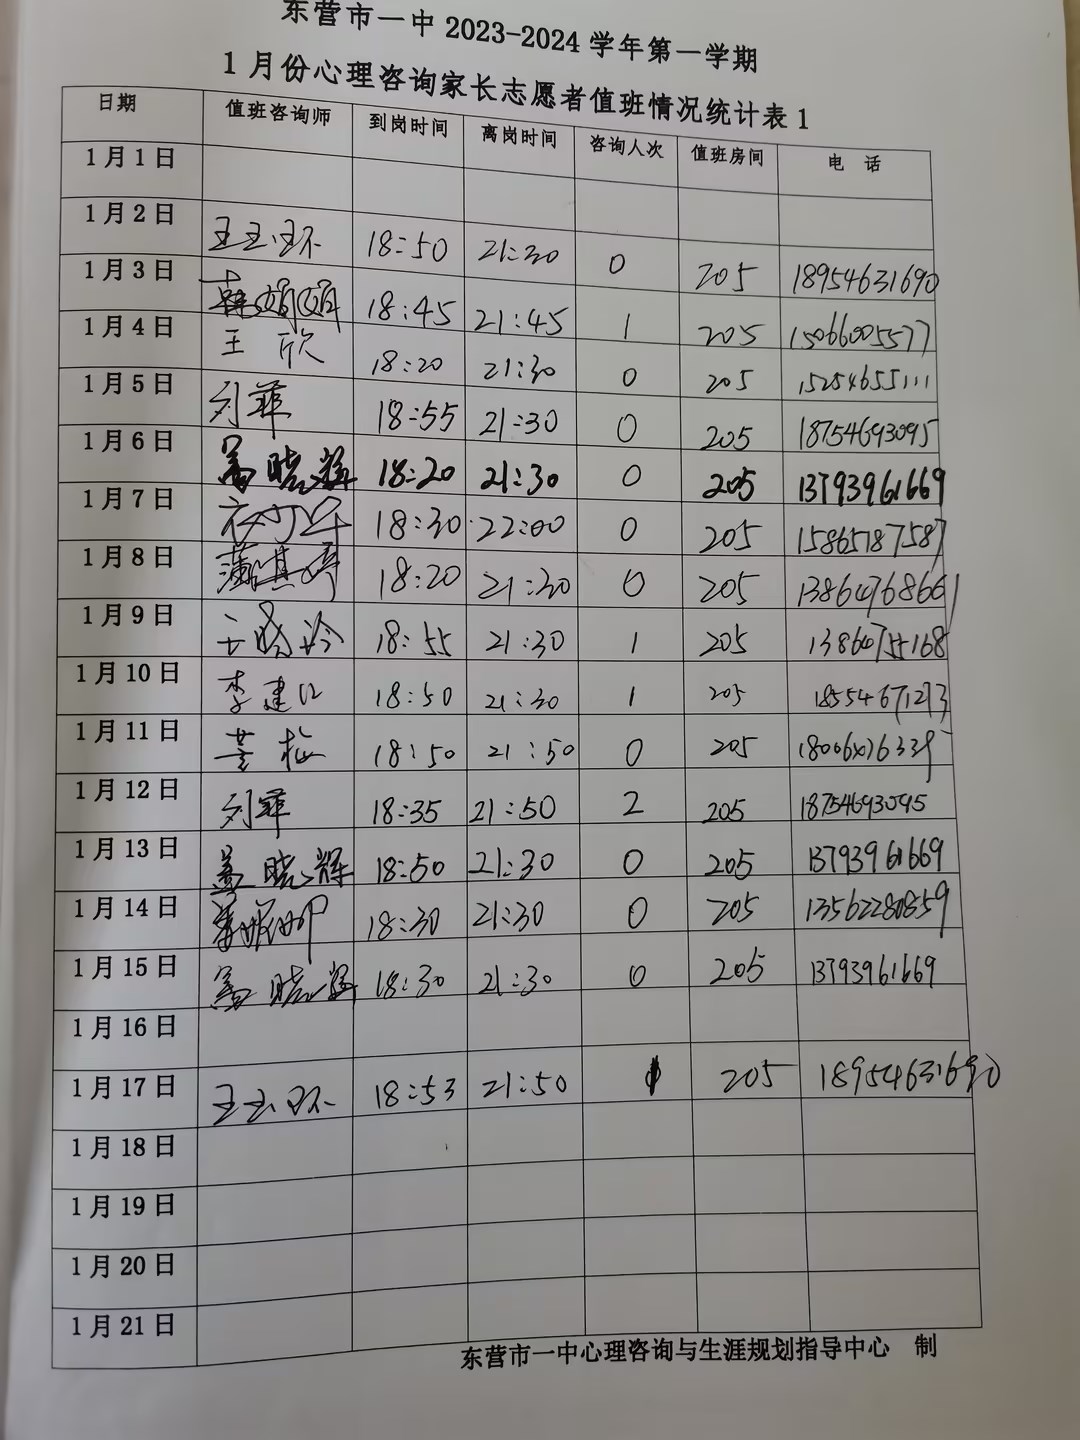 东营市一中 2023-2024 学年第一学期
1 月份心理咨询家长志愿者值班情况统计表 1
日期 值班咨询师 到岗时间 离岗时间 咨询人次 值班房间 电 话
1 月 1 日
1 月 2 日 王玉环 18:50 21:30 0 205 18954631690
1 月 3 日 韩娟娟 18:45 21:45 1 205 15066005577
1 月 4 日 王 欣 18:20 21:30 0 205 15254655111
1 月 5 日 刘菲 18:55 21:30 0 205 18754693095
1 月 6 日 盖晓辉 18:20 21:30 0 205 13793961669
1 月 7 日 18:30 22:00 0 205 15865187587
1 月 8 日 蒲淇婷 18:20 21:30 0 205 13864768661
1 月 9 日 18:55 21:30 1 205 13864755168
1 月 10 日 李建江 18:50 21:30 1 205 18554671273
1 月 11 日 黄梅 18:50 21:50 0 205
1 月 12 日 刘菲 18:35 21:50 2 205 18754693095
1 月 13 日 盖晓辉 18:50 21:30 0 205 13793961669
1 月 14 日 18:30 21:30 0 205 13562280859
1 月 15 日 盖晓辉 18:30 21:30 0 205 13793961669
1 月 16 日
1 月 17 日 王玉环 18:53 21:50 1 205 18954631690
1 月 18 日
1 月 19 日
1 月 20 日
1 月 21 日
东营市一中心理咨询与生涯规划指导中心 制